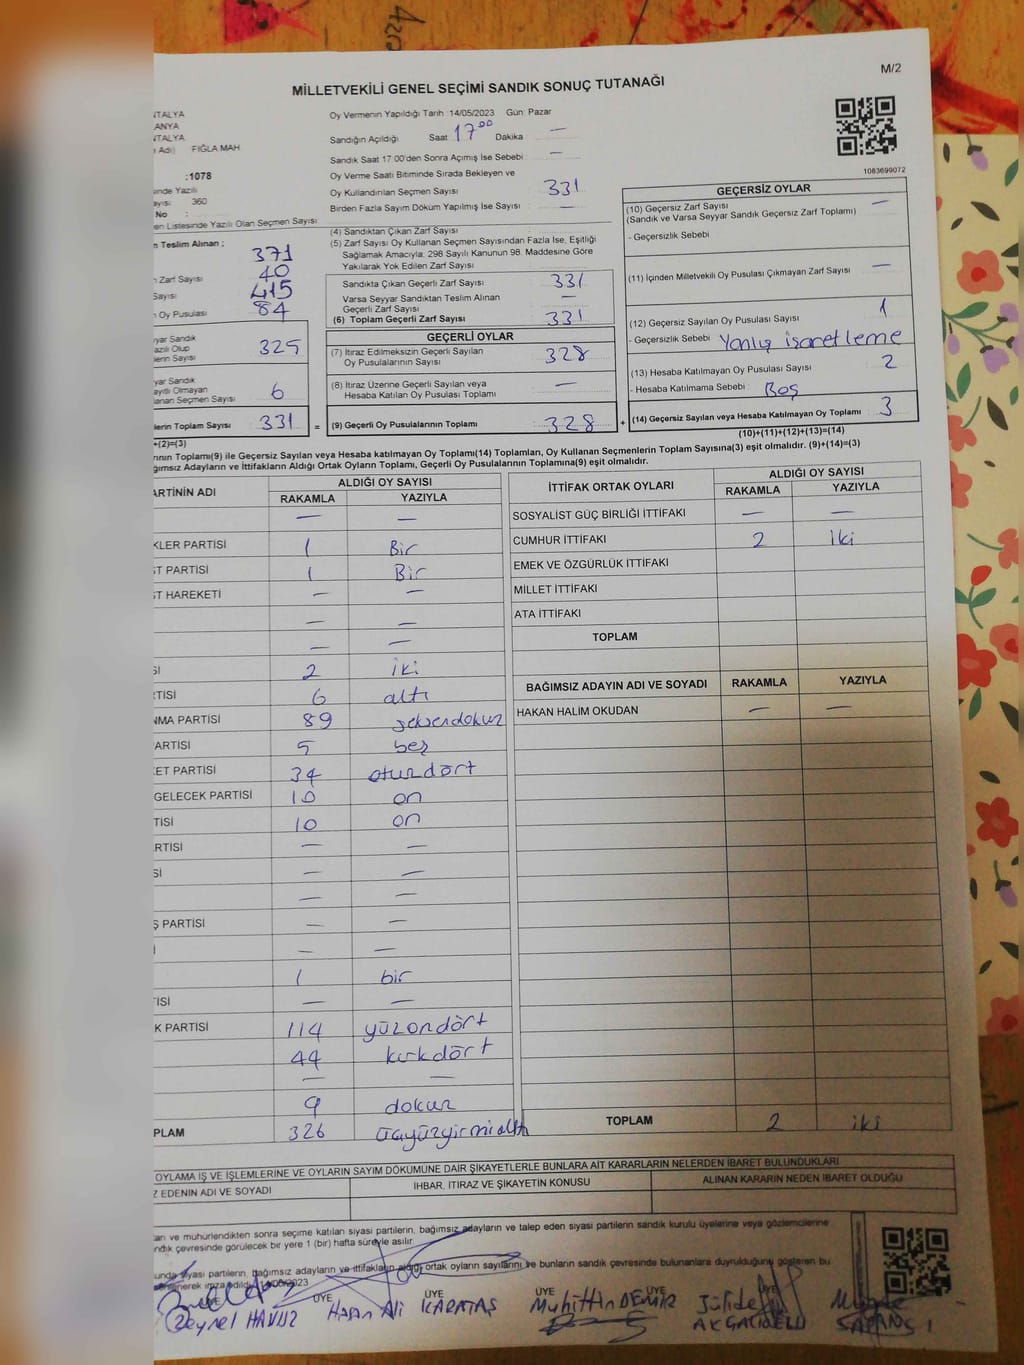 M/2
MİLLETVEKİLİ GENEL SEÇİMİ SANDIK SONUÇ TUTANAĞI
TALYA
ANYA
TALYA
Adı) FIĞLA MAH
:1078
inde Yazılı
ayısı 360
No :
en Listesinde Yazılı Olan Seçmen Sayısı
Oy Vermenin Yapıldığı Tarih :14/05/2023 Gün: Pazar
Sandığın Açıldığı Saat 17 00 Dakika —
Sandık Saat 17:00'den Sonra Açımış İse Sebebi —
Oy Verme Saati Bitiminde Sırada Bekleyen ve
Oy Kullandırılan Seçmen Sayısı 331
Birden Fazla Sayım Döküm Yapılmış İse Sayısı —
1083699072
n Teslim Alınan ; 371
n Zarf Sayısı 40
Sayısı 415
n Oy Pusulası 84
yyar Sandık
azılı Olup
lerin Sayısı 325
yar Sandık
ayıtlı Olmayan
lanan Seçmen Sayısı 6
lerin Toplam Sayısı 331 =
+(2)=(3)
(4) Sandıktan Çıkan Zarf Sayısı
(5) Zarf Sayısı Oy Kullanan Seçmen Sayısından Fazla İse, Eşitliği
Sağlamak Amacıyla; 298 Sayılı Kanunun 98. Maddesine Göre
Yakılarak Yok Edilen Zarf Sayısı
Sandıkta Çıkan Geçerli Zarf Sayısı 331
Varsa Seyyar Sandıktan Teslim Alınan
Geçerli Zarf Sayısı —
(6) Toplam Geçerli Zarf Sayısı 331
GEÇERLİ OYLAR
(7) İtiraz Edilmeksizin Geçerli Sayılan
Oy Pusulalarının Sayısı 328
(8) İtiraz Üzerine Geçerli Sayılan veya
Hesaba Katılan Oy Pusulası Toplamı —
(9) Geçerli Oy Pusulalarının Toplamı 328 +
GEÇERSİZ OYLAR
(10) Geçersiz Zarf Sayısı —
(Sandık ve Varsa Seyyar Sandık Geçersiz Zarf Toplamı)
- Geçersizlik Sebebi
(11) İçinden Milletvekili Oy Pusulası Çıkmayan Zarf Sayısı —
(12) Geçersiz Sayılan Oy Pusulası Sayısı 1
- Geçersizlik Sebebi Yanlış işaretleme
(13) Hesaba Katılmayan Oy Pusulası Sayısı 2
- Hesaba Katılmama Sebebi : Boş
(14) Geçersiz Sayılan veya Hesaba Katılmayan Oy Toplamı 3
(10)+(11)+(12)+(13)=(14)
rının Toplamı(9) ile Geçersiz Sayılan veya Hesaba katılmayan Oy Toplamı(14) Toplamları, Oy Kullanan Seçmenlerin Toplam Sayısına(3) eşit olmalıdır. (9)+(14)=(3)
ğımsız Adayların ve İttifakların Aldığı Ortak Oyların Toplamı, Geçerli Oy Pusulalarının Toplamına(9) eşit olmalıdır.
ARTİNİN ADI ALDIĞI OY SAYISI
RAKAMLA YAZIYLA
— —
KLER PARTİSİ 1 Bir
ST PARTİSİ 1 Bir
ST HAREKETİ — —
— —
— —
Sİ 2 iki
RTİSİ 6 altı
NMA PARTİSİ 89 seksendokuz
ARTİSİ 5 beş
ET PARTİSİ 34 otuzdört
GELECEK PARTİSİ 10 on
TİSİ 10 on
RTİSİ — —
Sİ — —
— —
Ş PARTİSİ — —
İ — —
1 bir
TİSİ — —
K PARTİSİ 114 yüzondört
44 kırkdört
— —
9 dokuz
PLAM 326 üçyüzyirmialtı
İTTİFAK ORTAK OYLARI ALDIĞI OY SAYISI
RAKAMLA YAZIYLA
SOSYALİST GÜÇ BİRLİĞİ İTTİFAKI — —
CUMHUR İTTİFAKI 2 iki
EMEK VE ÖZGÜRLÜK İTTİFAKI
MİLLET İTTİFAKI
ATA İTTİFAKI
TOPLAM
BAĞIMSIZ ADAYIN ADI VE SOYADI RAKAMLA YAZIYLA
HAKAN HALİM OKUDAN — —
TOPLAM 2 iki
OYLAMA İŞ VE İŞLEMLERİNE VE OYLARIN SAYIM DÖKÜMÜNE DAİR ŞİKAYETLERLE BUNLARA AİT KARARLARIN NELERDEN İBARET BULUNDUKLARI
Z EDENİN ADI VE SOYADI İHBAR, İTİRAZ VE ŞİKAYETİN KONUSU ALINAN KARARIN NEDEN İBARET OLDUĞU
arı ve mühürlendikten sonra seçime katılan siyasi partilerin, bağımsız adayların ve talep eden siyasi partilerin sandık kurulu üyelerine veya gözlemcilerine
ndık çevresinde görülecek bir yere 1 (bir) hafta süreyle asılır.
unda siyasi partilerin, bağımsız adayların ve ittifakların aldığı ortak oyların sayılarını ve bunların sandık çevresinde bulunanlara duyrulduğunu gösteren bu
ÜYE ÜYE ÜYE ÜYE
Zeynel HAVUZ Hasan Ali KARATAŞ Muhittin DEMİR Jülide